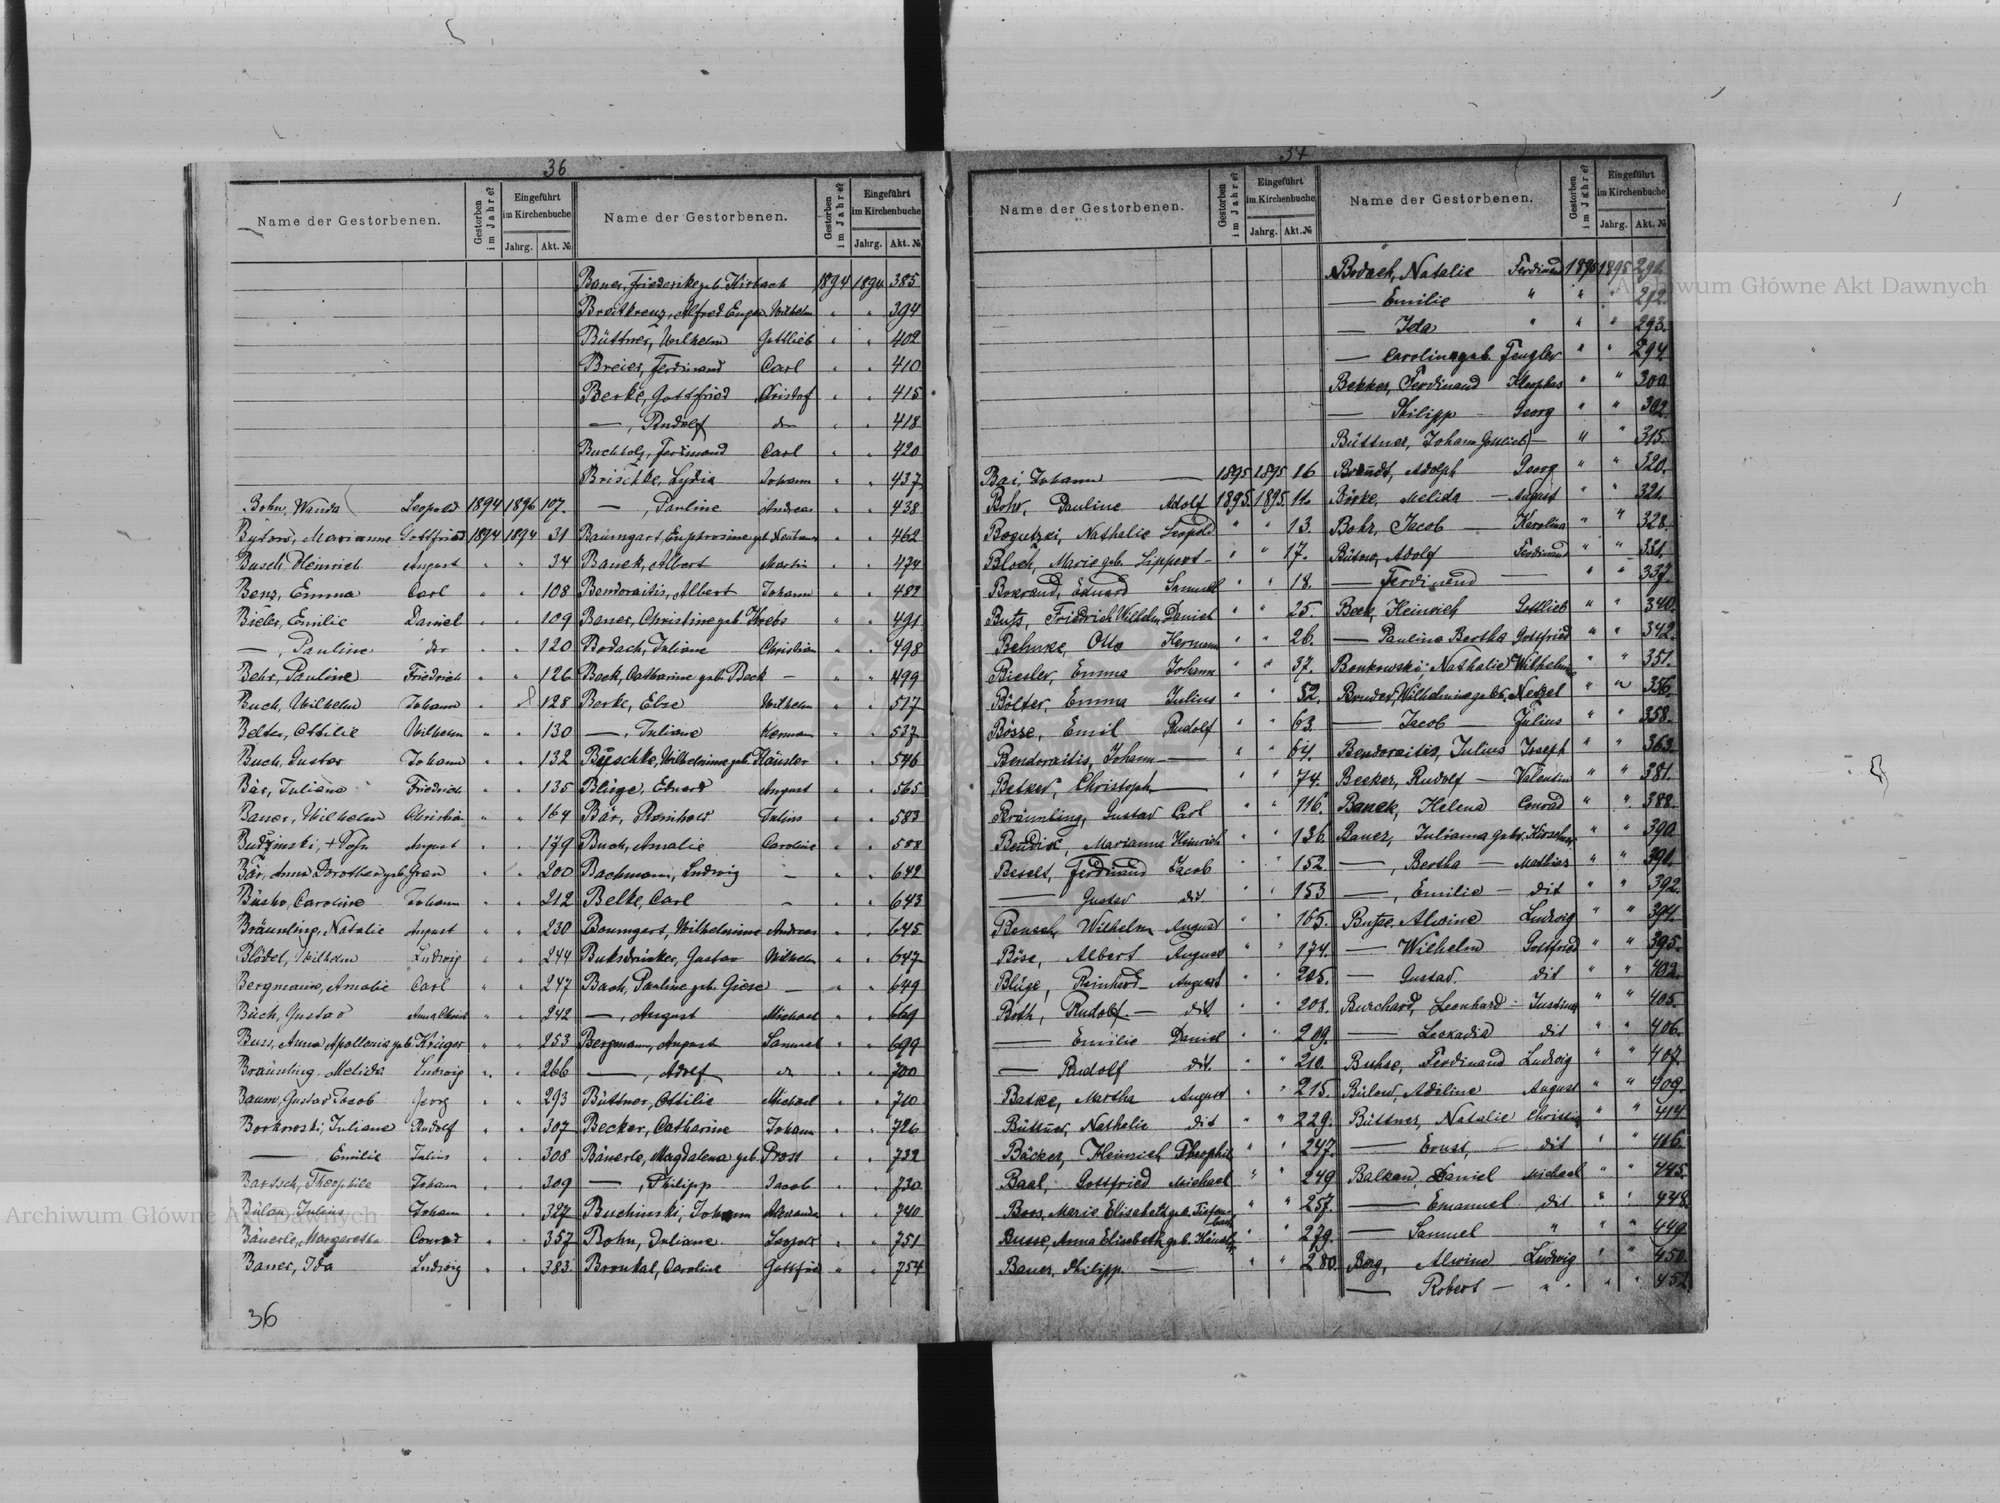 36
Name der Gestorbenen.
Gestorben im Jahre?
Eingeführt im Kirchenbuche
Jahrg. Akt. №
Bohn, Wanda Leopold 1894 1896 107.
Bytow, Marianne Gottfried 1894 1894 31
Busch, Heinrich August " " 34
Benz, Emma Carl " " 108
Bieler, Emilie Daniel " " 109
—, Pauline do " " 120
Behr, Pauline Friedrich " " 126
Buch, Wilhelm Johann " 128
Belter, Ottilie Wilhelm " " 130
Buch, Gustav Johann " " 132
Bär, Juliane Friedrich " " 135
Bauer, Wilhelm Christian " " 164
Budzinski, August " " 179
Bär, Anna Dorothea geb. " " 200
Caroline Johann " " 212
Bräunling, Natalie August " " 230
Blödel, Wilhelm Ludwig " " 244
Bergmann, Amalie Carl " " 247
Buch, Gustav Anna Christ " " 242
Buss, Anna Apollonia geb. Krüger " " 253
Bräunling, Melida Ludwig " " 266
Baum, Gustav Jacob Georg " " 293
Borkowski, Juliane Rudolf " " 307
— Emilie Julius " " 308
Bartsch, Theophile Johann " " 309
Bülau, Julius Johann " " 327
Bäuerle, Margaretha Conrad " " 357
Bauer, Ida Ludwig " " 383
36
Name der Gestorbenen.
Gestorben im Jahre?
Eingeführt im Kirchenbuche
Jahrg. Akt. №
Bauer, Friederike geb. Hirbach 1894 1894 385
Breitkreuz, Alfred Eugen Wilhelm " " 394
Büttner, Wilhelm Gottlieb " " 402
Breier, Ferdinand Carl " " 410
Berke, Gottfried Christof " " 415
—, Rudolf do " " 418
Buchholz, Ferdinand Carl " " 420
Brischke, Lydia Johann " " 437
—, Pauline Andreas " " 438
Baumgart, Euphrosine geb. " " 462
Banek, Albert Martin " " 474
Bendoraitis, Albert Johann " " 482
Bauer, Christine geb. Krebs " " 491
Bodach, Juliane Christian " " 498
Beck, Catharine geb. Beck — " " 499
Berke, Wilhelm " " 517
—, Juliane Herman " " 537
Buschke, Wilhelmine geb. Häusler " " 546
Bliege, Eduard August " " 565
Bär, Reinhold Julius " " 583
Buch, Amalie Caroline " " 588
Bachmann, Ludwig — " " 642
Belke, Carl — " " 643
Baumgart, Wilhelmine Andreas " " 645
Buksdrücker, Gustav Wilhelm " " 647
Bach, Pauline geb. Giese — " " 649
—, August Michael " " 669
Bergmann, August Samuel " " 699
—, Adolf do " " 700
Büttner, Ottilie Michael " " 710
Becker, Catharine Johann " " 726
Bäuerle, Magdalena geb. Prost " " 732
—, Philipp Jacob " " 730
Buchinski, Johann " " 740
Bohn, Juliane Leopold " " 751
Bronkal, Caroline Gottfried " " 754
Name der Gestorbenen.
Gestorben im Jahre?
Eingeführt im Kirchenbuche
Jahrg. Akt. №
Bai, Johann — 1895 1895 16
Bohr, Pauline Adolf 1895. 1895. 11.
Bogutzki, Nathalie Leopold " " 13.
Bloch, Marie geb. Lippert — " " 17.
Eduard Samuel " " 18.
Buts, Friedrich Wilhelm Daniel " " 25.
Behnke, Otto Hermann " " 26.
Biesler, Emma Johann " " 37.
Bölter, Emma Julius " " 52.
Bösse, Emil Rudolf " " 63.
Bendoraitis, Johann — " " 64.
Betker, Christoph — " " 74.
Bräunling, Gustav Carl " " 116.
Bendick, Marianna Heinrich " " 136.
Beselt, Ferdinand Jacob " " 152
— Gustav dit. " " 153
Bensch, Wilhelm August " " 165.
Böse, Albert August " " 174.
Bliege, Reinhard — August " " 205.
Both, Rudolf. — dit. " " 208.
— Emilie Daniel " " 209.
— Rudolf dit. " " 210.
Batke, Martha August " " 215.
Büttner, Nathalie dit " " 229.
Bäcker, Heinrich Theophil " " 247.
Baal, Gottfried Michael " " 249
Boos, Marie Elisabeth geb. Tiefenbach " " 257.
Busse, Anna Elisabeth geb. " " 279.
Bauer, Philipp. — " " 280
Name der Gestorbenen.
Gestorben im Jahre?
Eingeführt im Kirchenbuche
Jahrg. Akt. №
Bodach, Natalie Ferdinand 1895 1895 291.
— Emilie " " " 292.
— Ida " " " 293.
— Caroline geb. Fengler " " 294
Bekker, Ferdinand Kleophas " " 300
— Philipp — Georg " " 302.
Büttner, Johann Gottlieb — " " 315.
Brandt, Adolph Georg " " 320.
Börke, Melida — August " " 321.
Bohr, Jacob — Karolina " " 328.
Bütow, Adolf Ferdinand " " 331.
— Ferdinand — " " 337.
Beek, Heinrich Gottlieb " " 340.
— Paulina Bertha Gottfried " " 342.
Bonkowski, Nathalie Wilhelmine " " 351.
Bender, Wilhelmine gebr. Netzel " " 356.
— Jacob — Julius " " 358.
Bendoraitis, Julius Joseph " " 363.
Becker, Rudolf — Valentin " " 381.
Banek, Helena Conrad " " 388.
Bauer, Julianna gebr. " " 390
—, Bertha — Mathias " " 391.
—, Emilie — dit " " 392.
Butze, Alwine Ludwig " " 394.
— Wilhelm Gottfried " " 395.
— Gustav. dit " " 402.
Burchard, Leonhard — Justina " " 405.
— Leokadia dit " " 406.
Buhse, Ferdinand Ludwig " " 407.
Bülow, Adeline August " " 409.
Büttner, Natalie Christian " " 414
— Ernst, — dit " " 416.
Balkau, Daniel Michael " " 445.
— Emanuel dit. " " 448.
— Samuel " " " 449
Berg, Alwine Ludwig " " 450.
— Robert — " " " 452
Archiwum Główne Akt Dawnych
Archiwum Główne Akt Dawnych